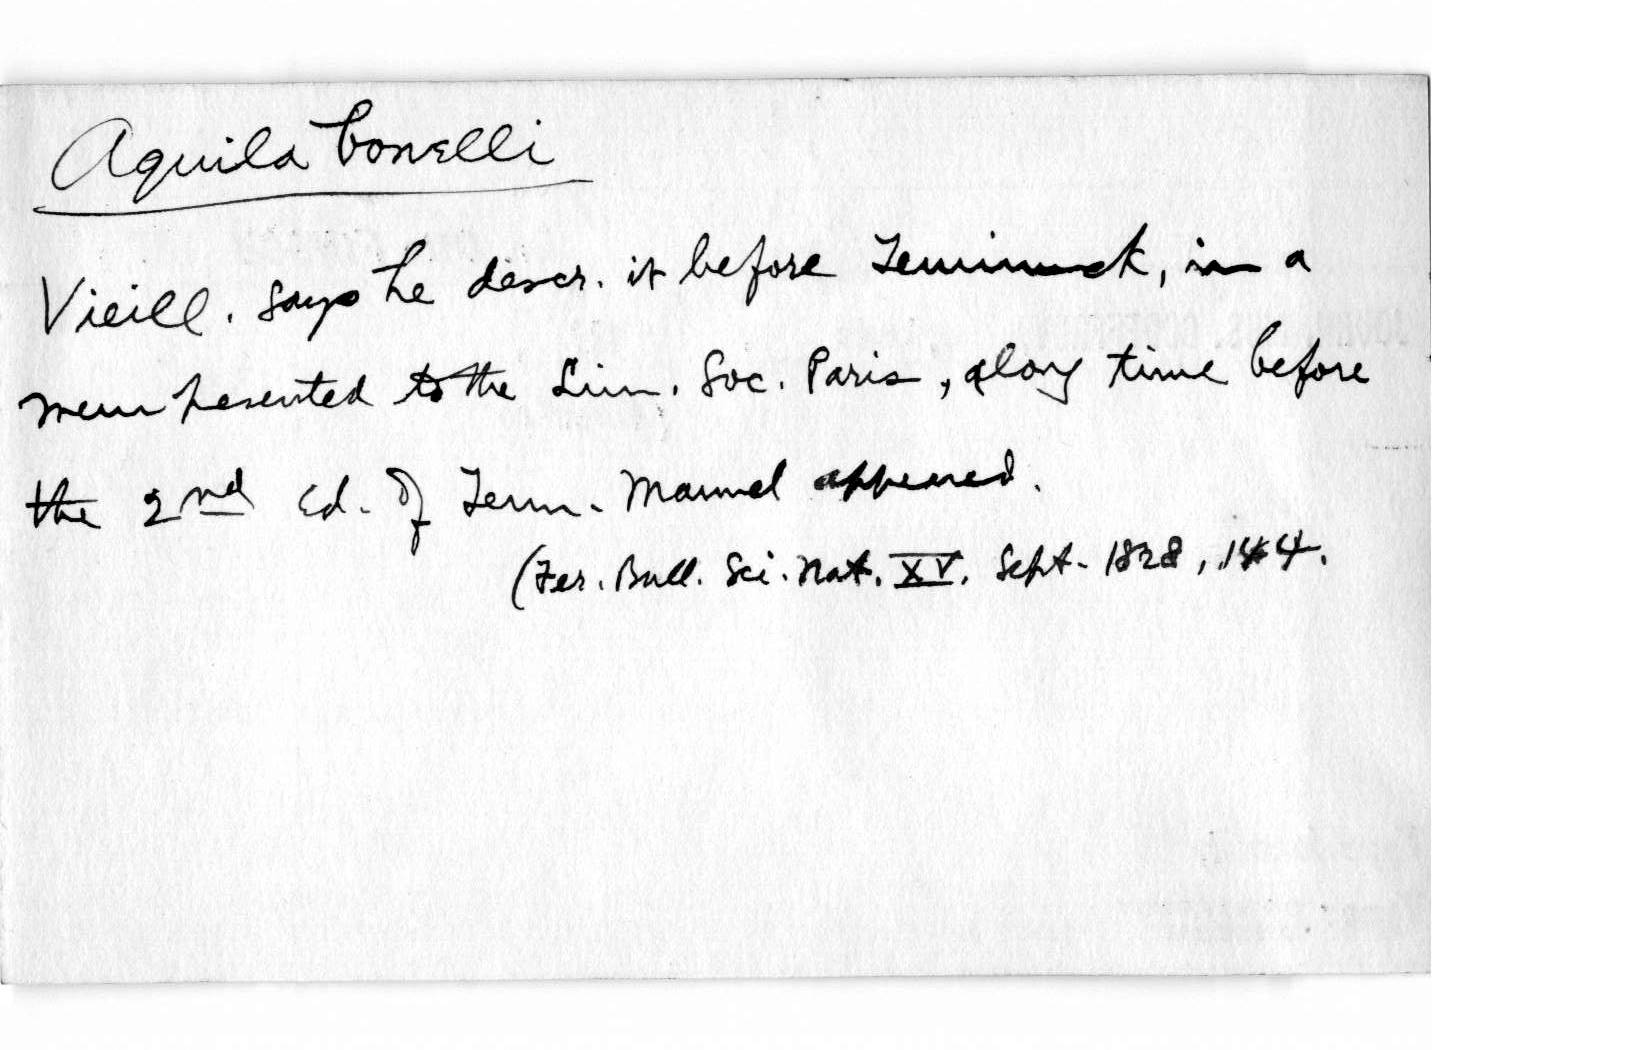 Aquila bonelli
Vieill. says he descr. it before Temminck, in a
mem presented to the Linn. Soc. Paris, a long time before
the 2nd Ed. of Temm. Manuel appeared.
(Fer. Bull. Sci. Nat. XV. Sept. 1828, 144.